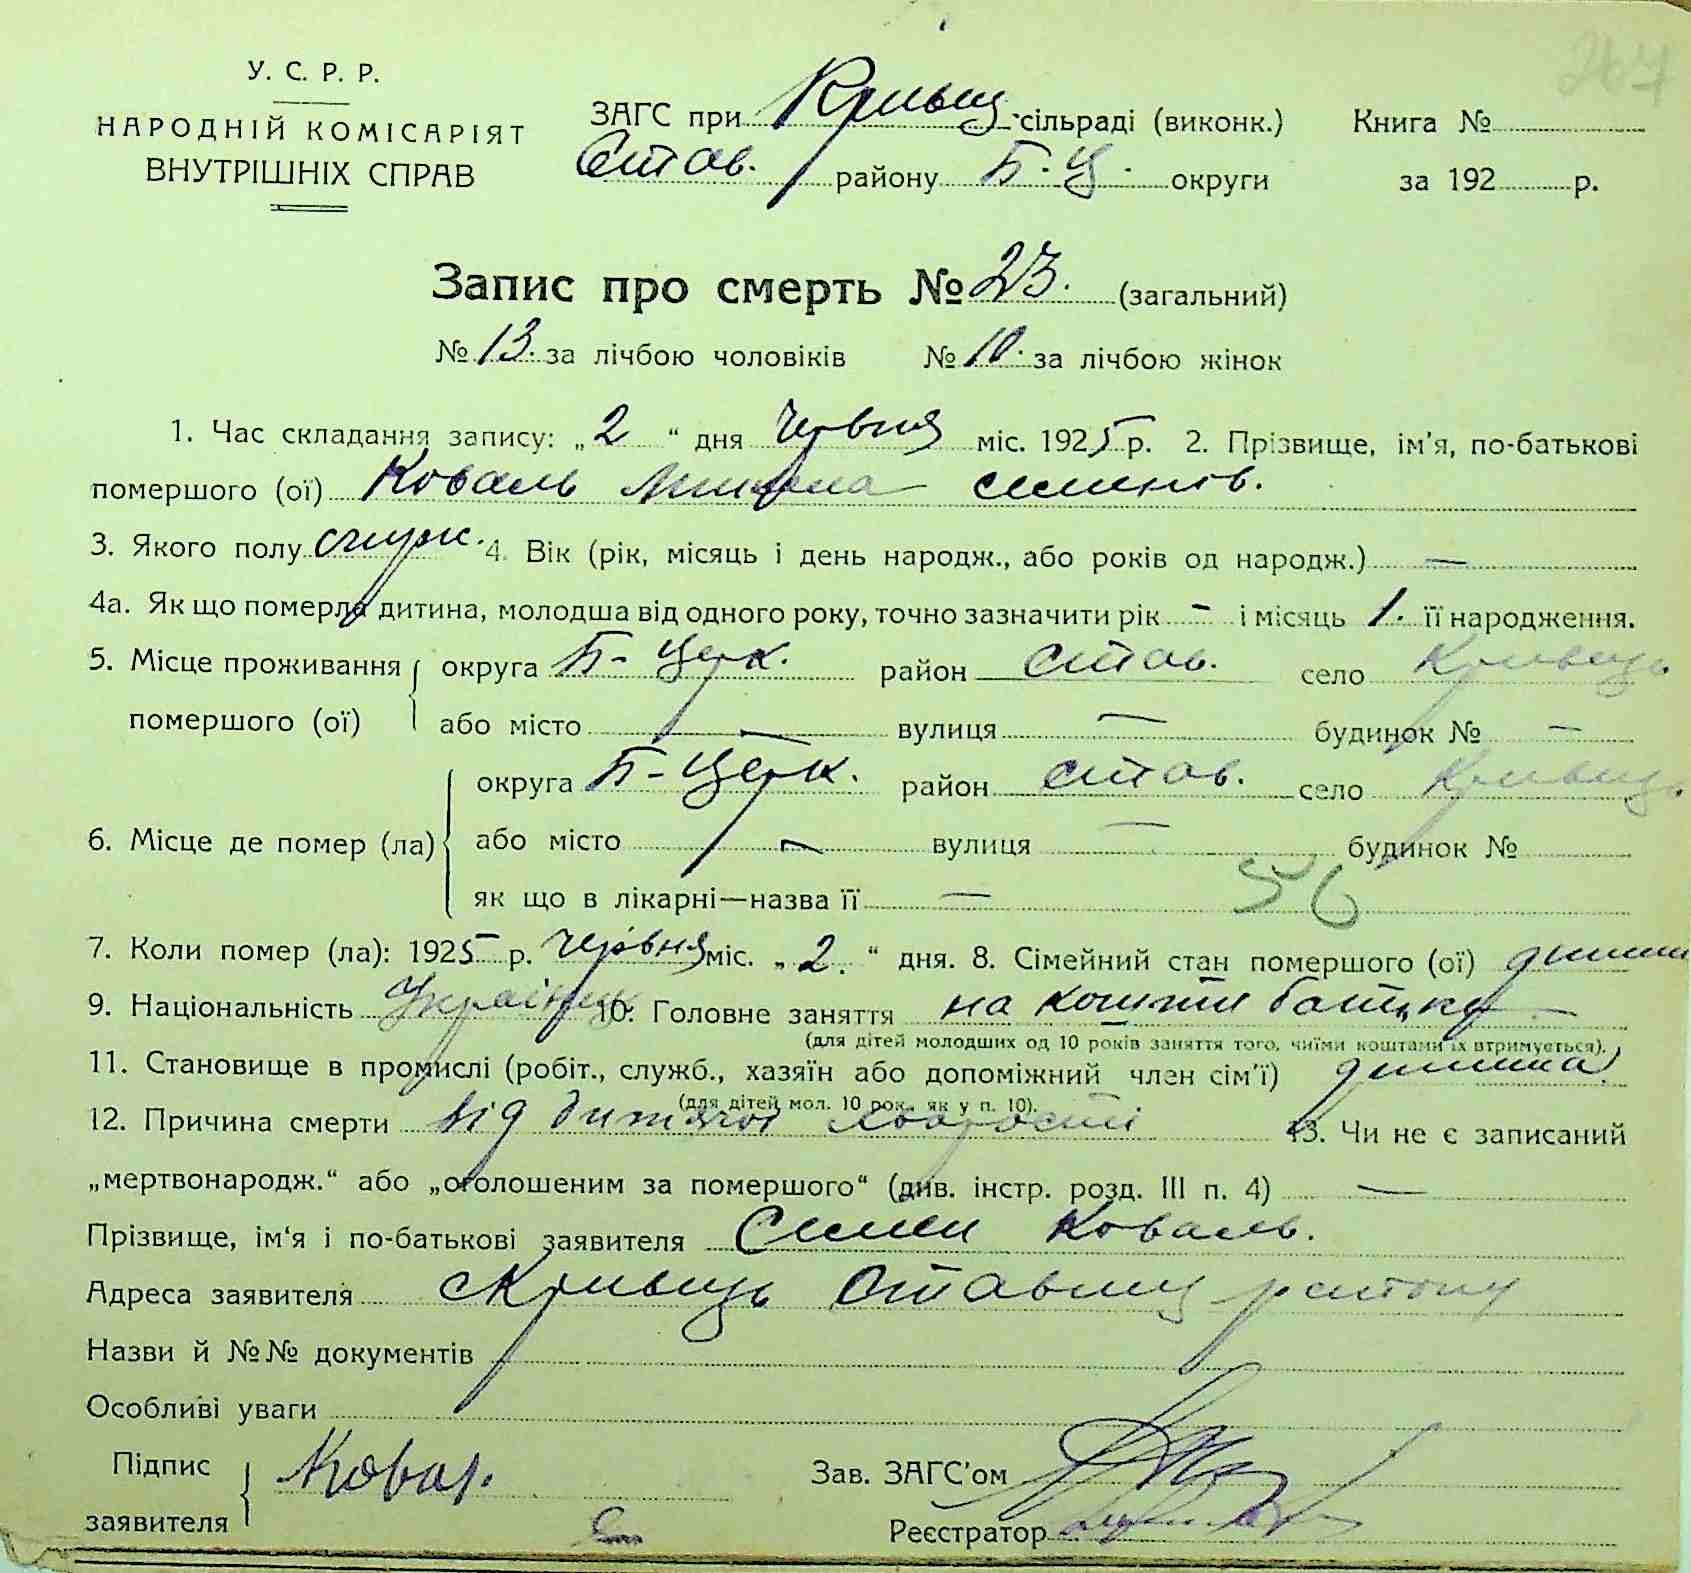 267
У. С. Р. Р.
НАРОДНІЙ КОМІСАРІЯТ
ВНУТРІШНІХ СПРАВ
ЗАГС при Кривец сільраді (виконк.) Книга №
Став. району Б.Ц. округи за 192 р.
Запис про смерть № 23. (загальний)
№ 13. за лічбою чоловіків № 10. за лічбою жінок
1. Час складання запису: „2“ дня червня міс. 1925 р. 2. Прізвище, ім'я, по-батькові
помершого (ої) Коваль Микола Семенів.
3. Якого полу 4. Вік (рік, місяць і день народж., або років од народж.) —
4а. Як що померла дитина, молодша від одного року, точно зазначити рік - і місяць 1. її народження.
5. Місце проживання округа Б-Церк. район Став. село Кривець
помершого (ої) або місто — вулиця — будинок № —
округа Б-Церк. район Став. село Кривець
6. Місце де помер (ла) або місто — вулиця — будинок №
як що в лікарні—назва її — 56
7. Коли помер (ла): 1925 р. червня міс. „2.“ дня. 8. Сімейний стан помершого (ої) дитина
9. Національність Українец 10. Головне заняття на кошти батька —
(для дітей молодших од 10 років заняття того, чиїми коштами їх втримується).
11. Становище в промислі (робіт., служб., хазяїн або допоміжний член сім'ї) дитина
(для дітей мол. 10 рок. як у п. 10).
12. Причина смерти від дитячої слабости 13. Чи не є записаний
„мертвонародж.“ або „оголошеним за помершого“ (див. інстр. розд. III п. 4) —
Прізвище, ім'я і по-батькові заявителя Семен Коваль.
Адреса заявителя с Кривець Ставищ району
Назви й №№ документів
Особливі уваги
Підпис
заявителя Ковал.
Зав. ЗАГС'ом
Реєстратор